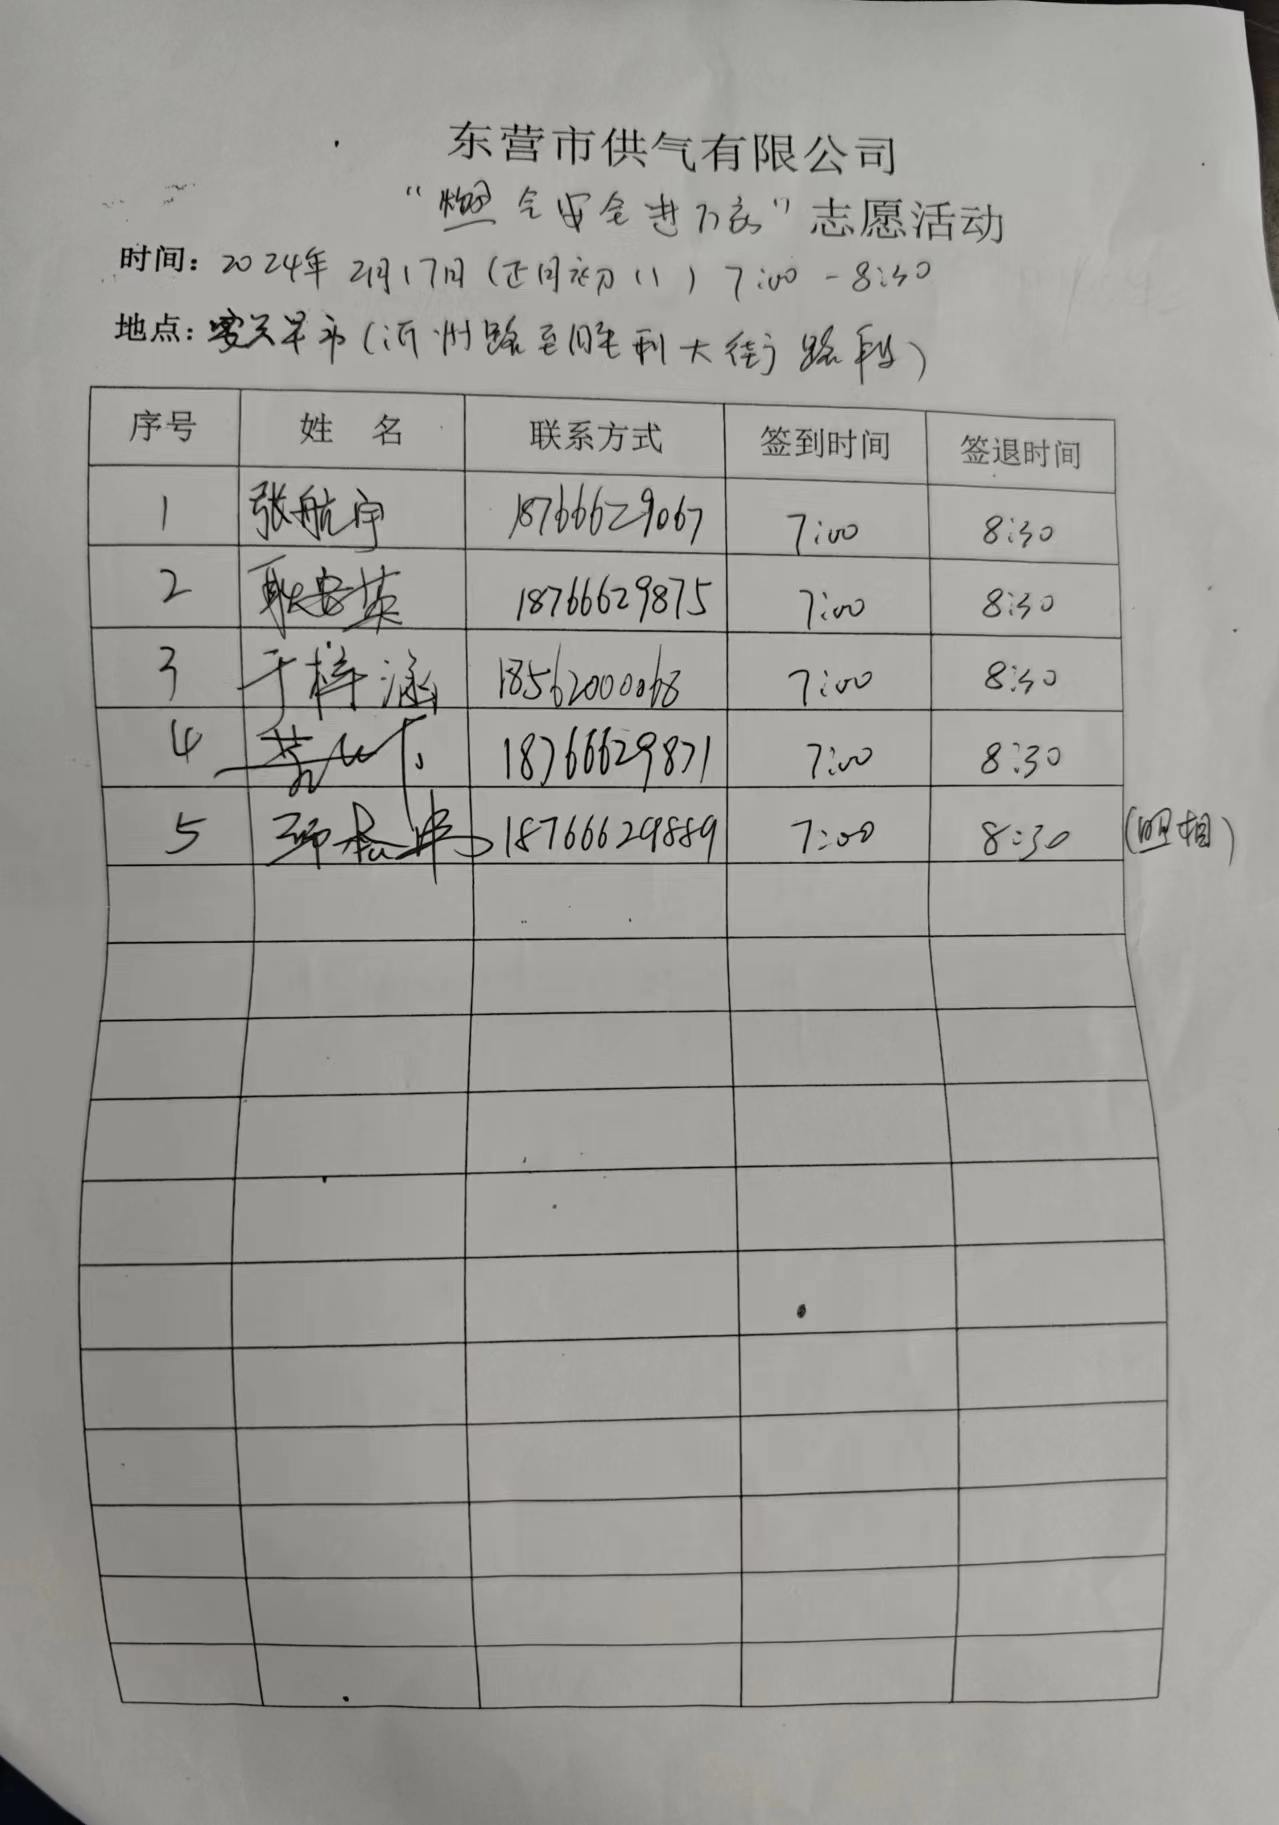 东营市供气有限公司
“燃气安全进万家”志愿活动
时间：2024年2月17日(正月初八) 7:00-8:30
地点：早市(沂州路至胜利大街路段)
序号 姓 名 联系方式 签到时间 签退时间
1 张航宇 18766629067 7:00 8:30
2 耿安英 18766629875 7:00 8:30
3 于梓涵 18562000068 7:00 8:30
4 18766629871 7:00 8:30
5 18766629889 7:00 8:30 (照相)